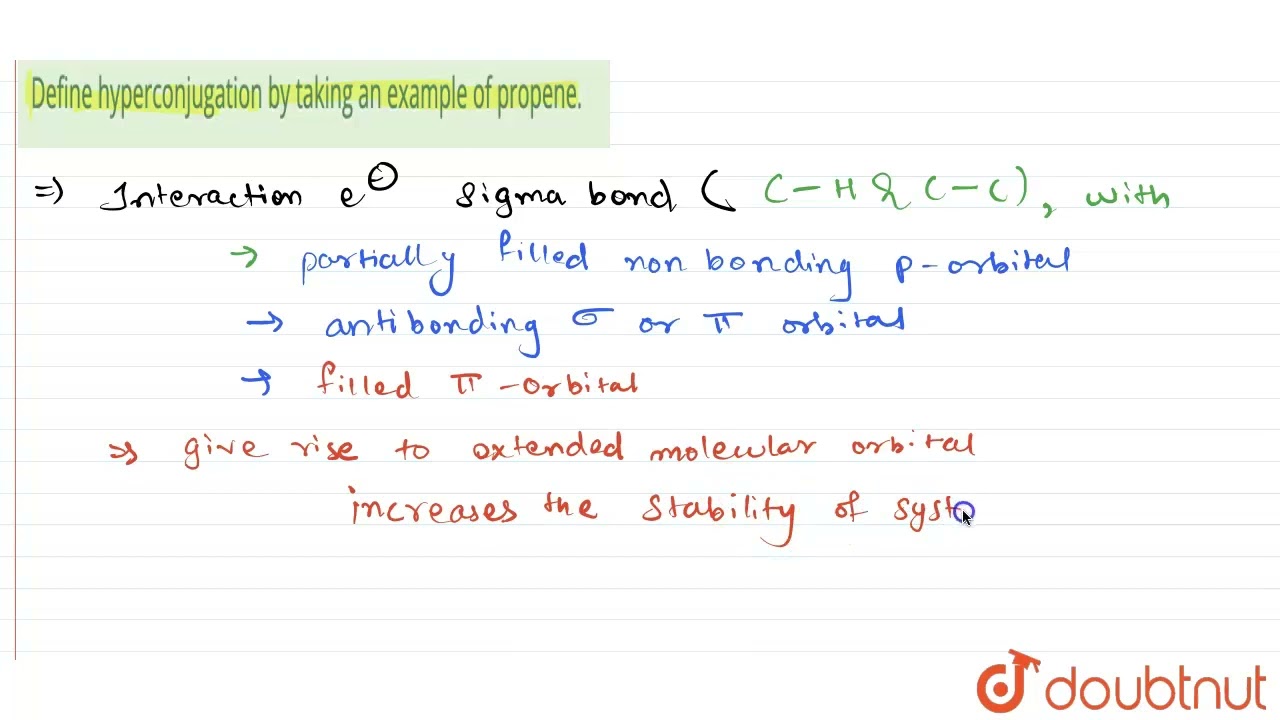 Define hyperconjugation by taking an example of propene.
⇒ Interaction e⊖ sigma bond ( C-H & C-C), with
→ partially filled non bonding p-orbital
→ antibonding σ or π orbital
→ filled π-orbital
⇒ give rise to extended molecular orbital
increases the stability of syst
doubtnut